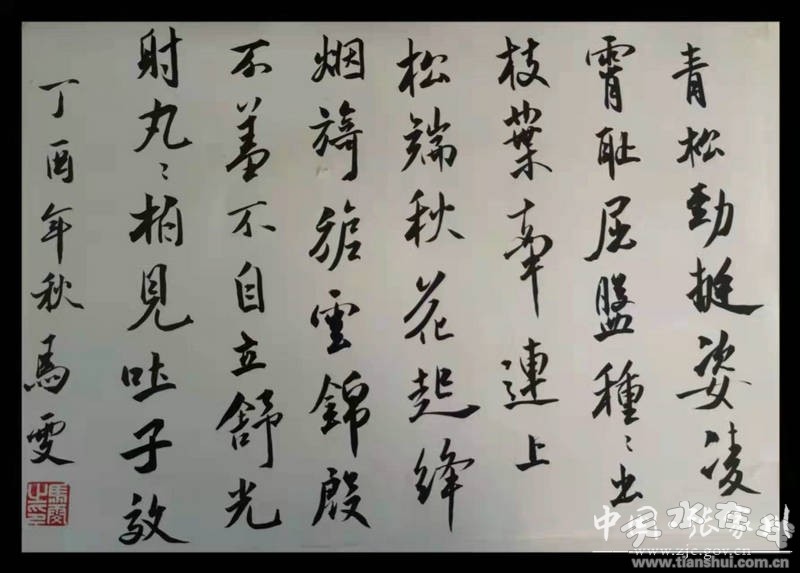 青松勁挺姿凌
霄耻屈盤種〻出
枝葉牽連上
松端秋花起絳
烟旖旎雲錦殷
不羞不自立舒光
射丸〻柏見吐子效
丁酉年秋馬雯
馬雯之印
www.zjc.gov.cn
www.tianshui.com.cn